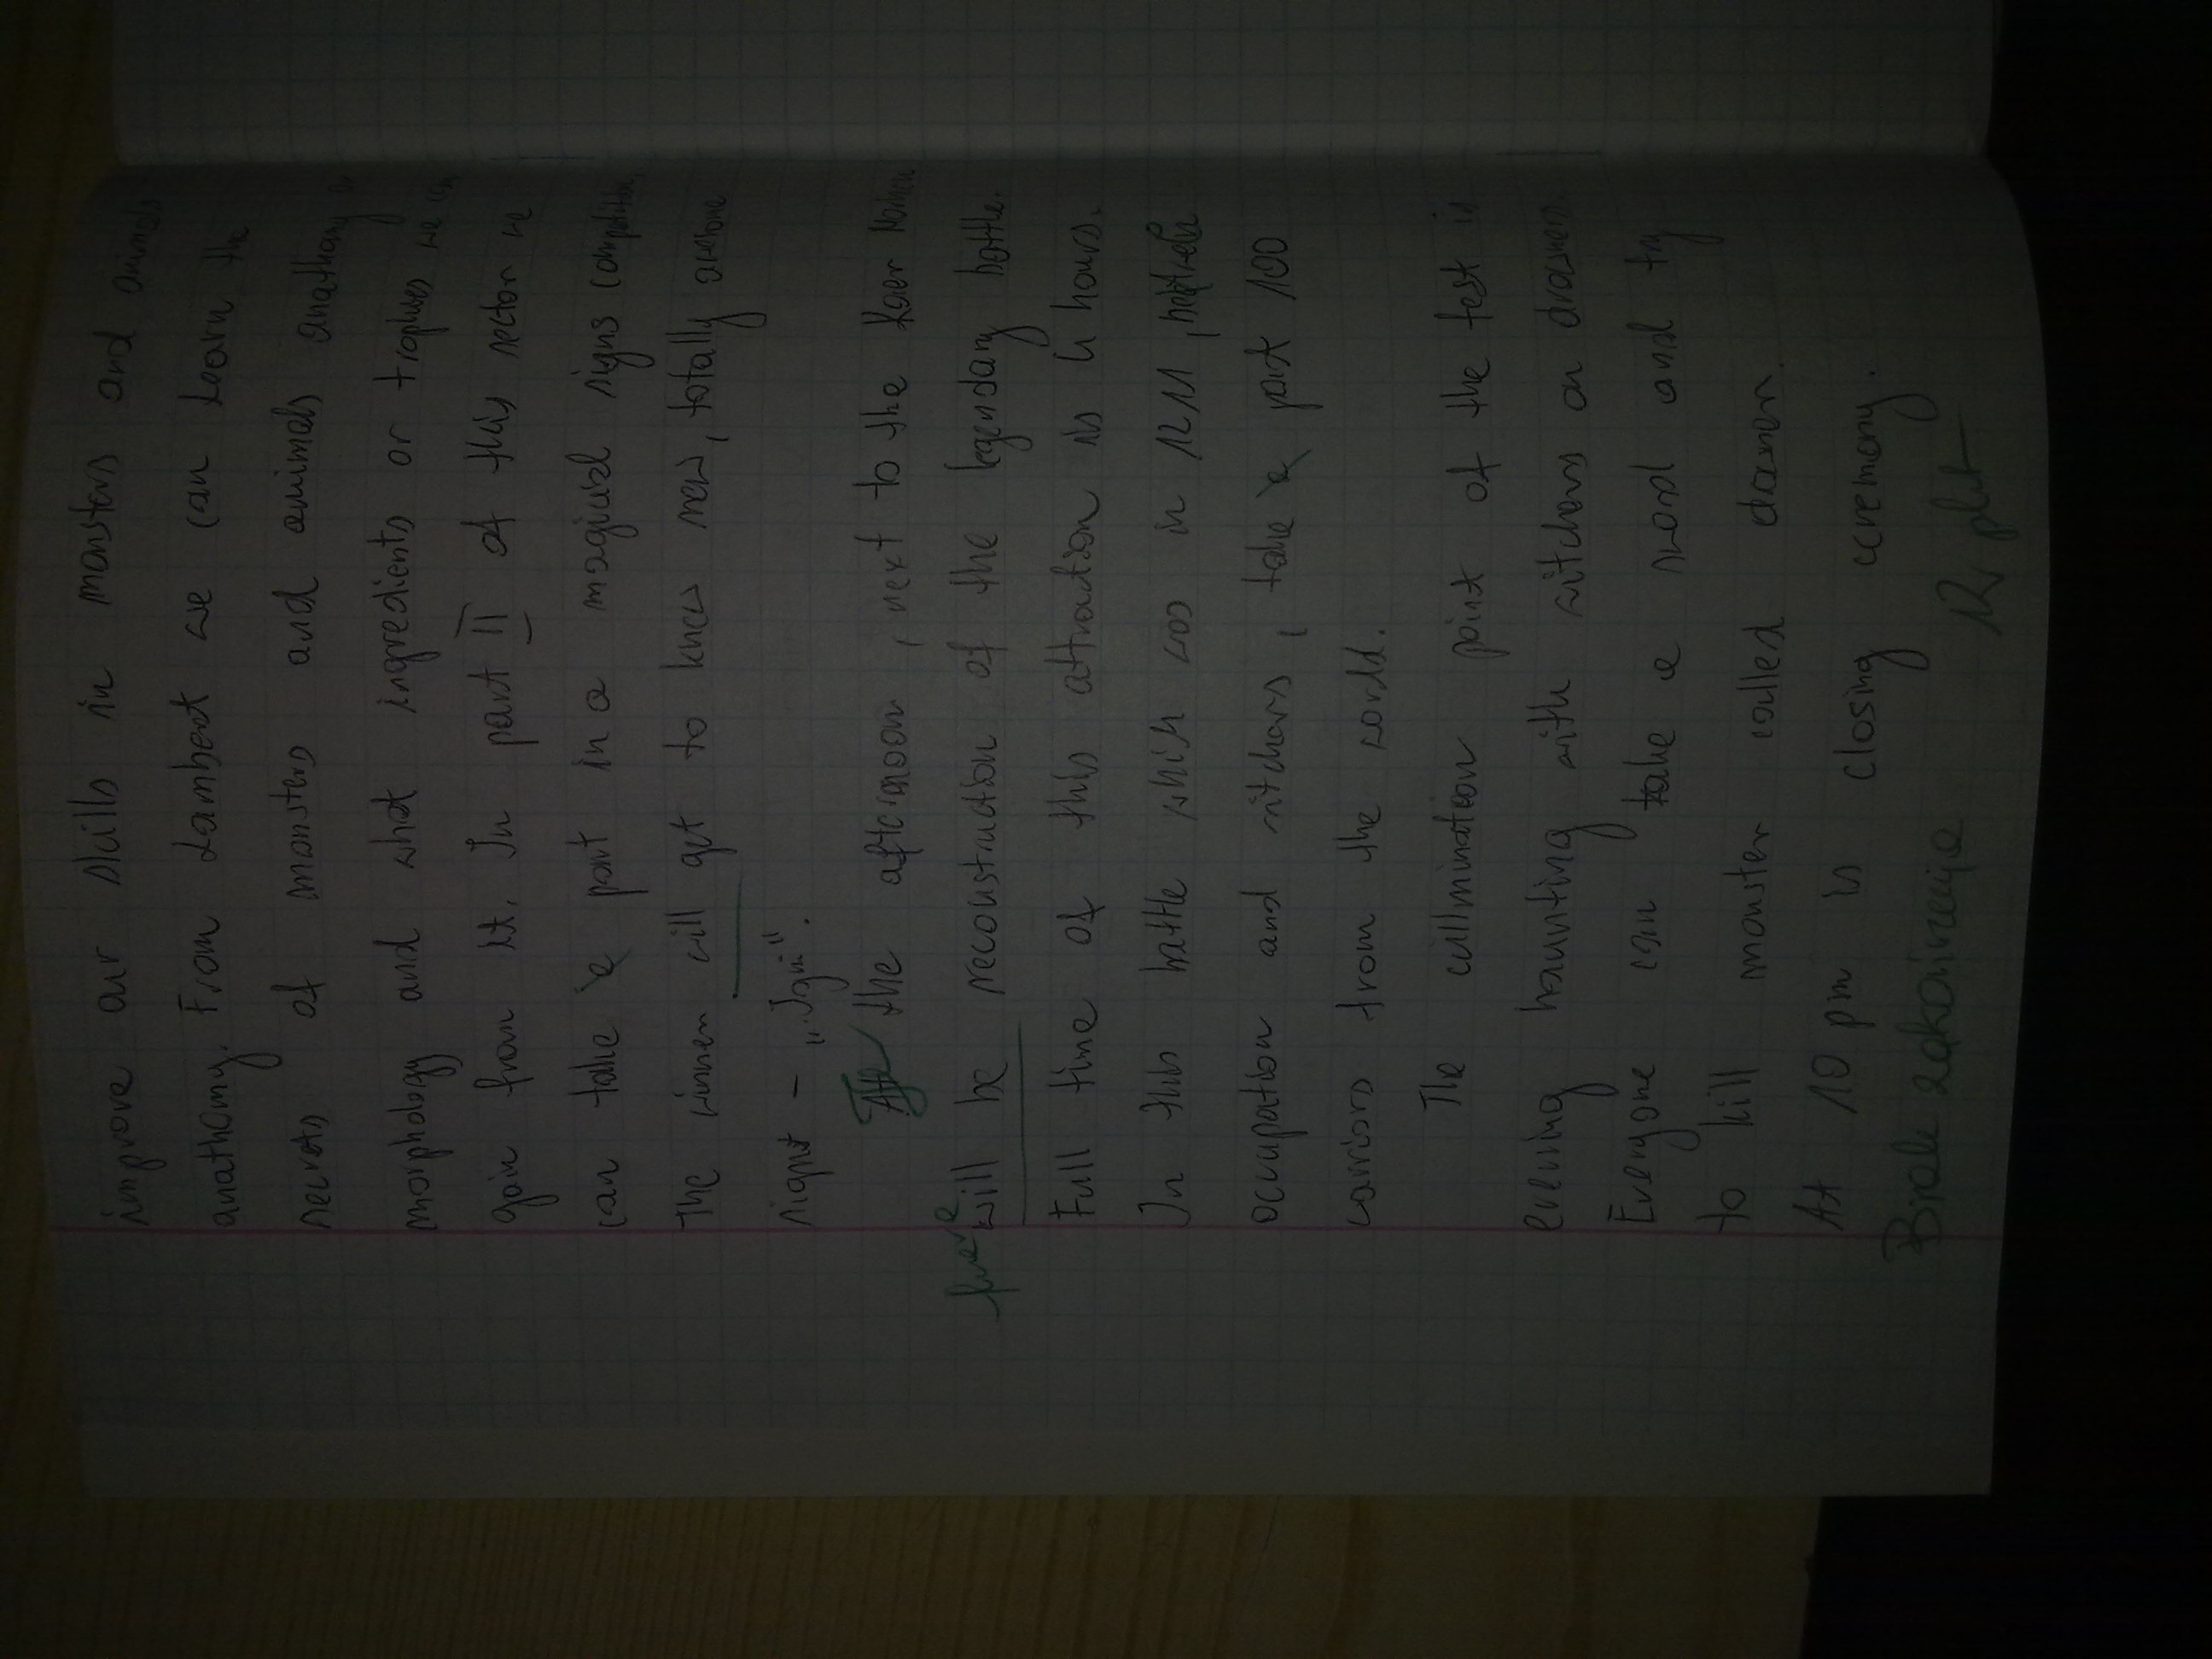 improve our skills in monsters and animals
anathomy. From Lambert we can learn the
secrets of monsters and animals anathomy
morphology and what ingredients or trophies we can
gain from it. In part II of this section we
can take a part in a magical signs competition,
The winner will get to know new, totally awesome
signt - "Igni".
the afternoon, next to the Kaer Morhen
there
will be reconstruction of the legendary battle.
Full time of this attraction is 4 hours.
In this battle which was in 1211, between
occupation and witchers, take a part 100
warriors from the world.
The cullmination point of the fest is
evening haunting with witchers on drowners.
Everyone can take a sword and try
to kill monster called drowner.
At 10 pm is closing ceremony.
Brak zakończenia 12 pkt